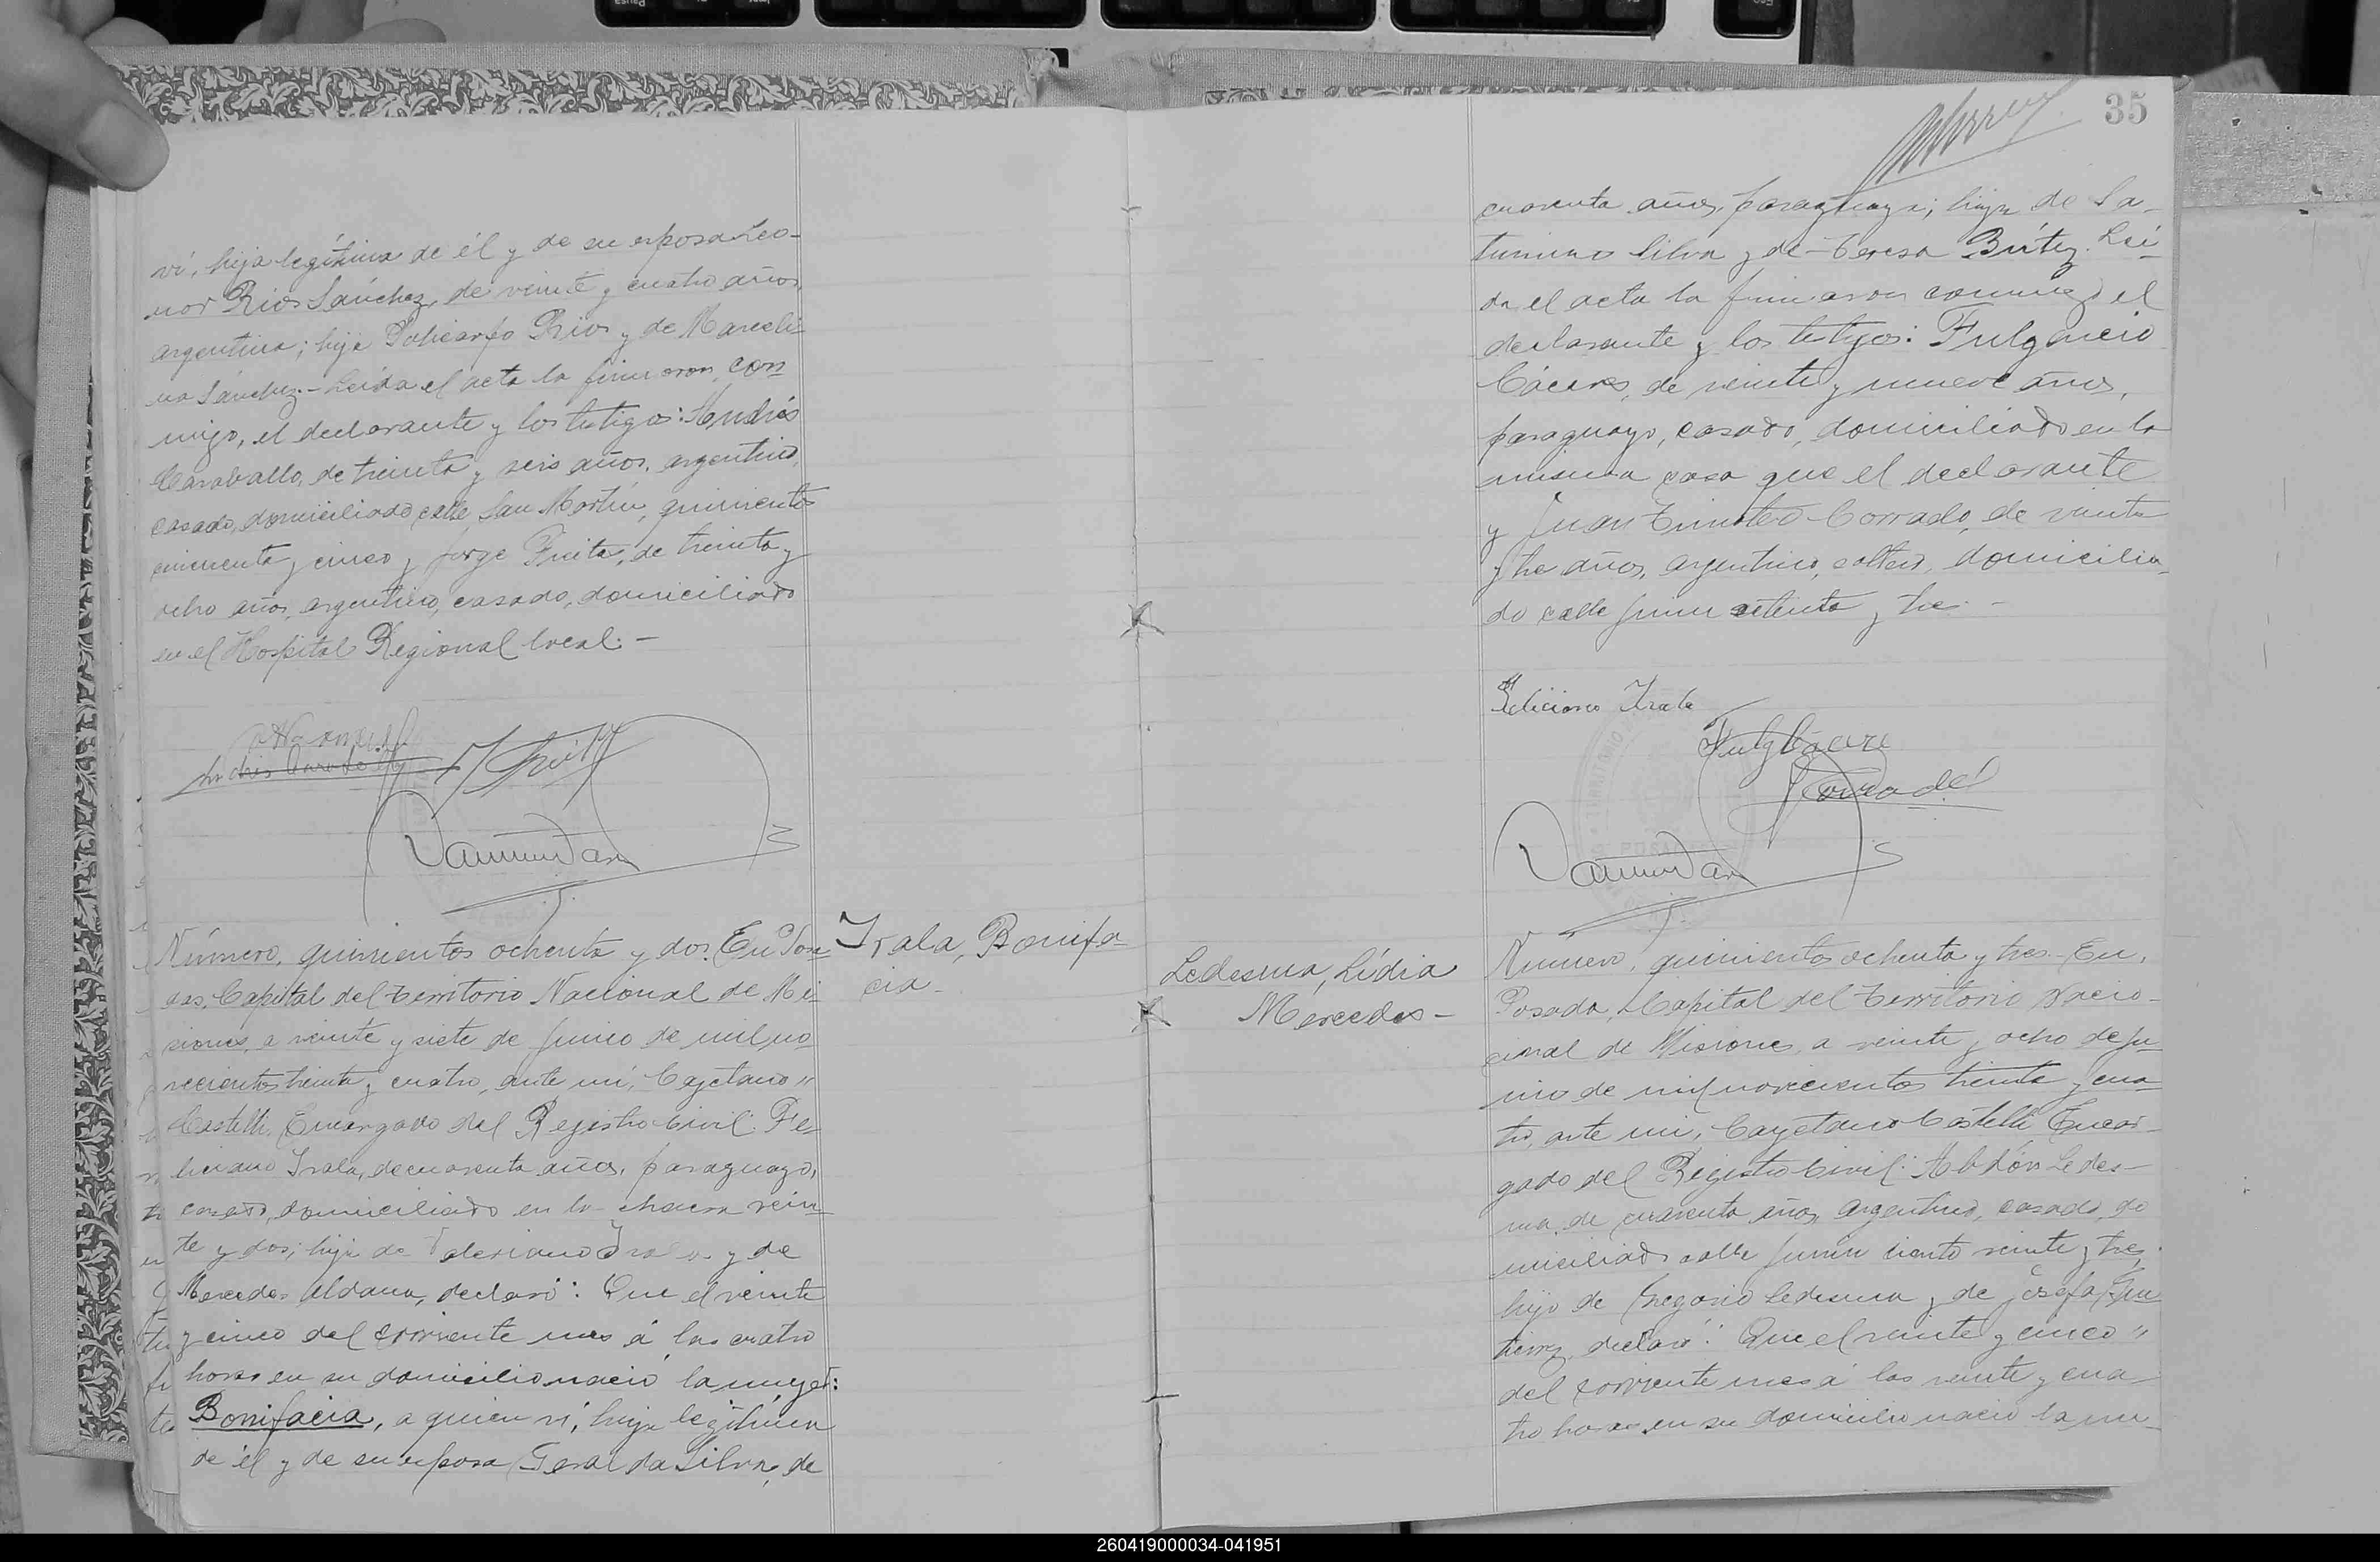 ví, hija legítima de él y de su esposa Leo-
nor Rios Sánchez, de veinte y cuatro años,
argentina; hija Policarpo Rios y de Marceli-
na Sánchez.- Leida el acta la firmaron con-
migo, el declarante y los testigos: Andrés
Caraballo, de treinta y seis años, argentino,
casado, domiciliado calle San Martín, quinientos
cincuenta y cinco y Jorge Freita, de treinta y
ocho años, argentino, casado, domiciliado
en el Hospital Regional local.-
Número, quinientos ochenta y dos. En Posa-
das, Capital del Territorio Nacional de Mi-
siones, a veinte y siete de Junio de mil no-
vecientos treinta y cuatro, ante mí, Cayetano "
Castelli, Encargado del Registro Civil: Fe-
liciano Irala, de cuarenta años, paraguayo,
casado, domiciliado en la chacra vein-
te y dos; hijo de Valeriano Irala y de
Mercedes Aldana, declaró: Que el veinte
y cinco del corriente mes á las cuatro
horas en su domicilio nació la mujer:
Bonifacia, a quien ví, hija legítima
de él y de su esposa Geralda Silva, de
Irala, Bonifa-
cia-
35
cuarenta años, paraguaya; hija de Sa-
turnino Silva y de Teresa Brítez. Leí-
da el acta la firmaron conmigo el
declarante y los testigos: Fulgencio
Cáceres, de veinte y nueve años,
paraguayo, casado, domiciliado en la
misma casa que el declarante
y Juan Timoteo Corrado, de veinte
y tres años, argentino, soltero, domicilia-
do calle Junin setenta y tres.-
Feliciano Irala
Fulg Cáceres
Ledesma, Lídia
Mercedes-
Número, quinientos ochenta y tres.- En,
Posadas, Capital del Territorio Nacio-
cional de Misiones, a veinte y ocho de Ju-
nio de mil novecientos treinta y cua-
tro, ante mi, Cayetano Castelli Encar-
gado del Registro Civil: Abdón Ledes-
ma, de cuarenta años, argentino, casado, do-
miciliado calle Junin ciento veinte y tres,
hijo de Gregorio Ledesma y de Josefa Gu-
tierrez, declaró: Que el veinte y cinco "
del corriente mes á las veinte y cua-
tro horas en su domicilio nació la mu-
260419000034-041951